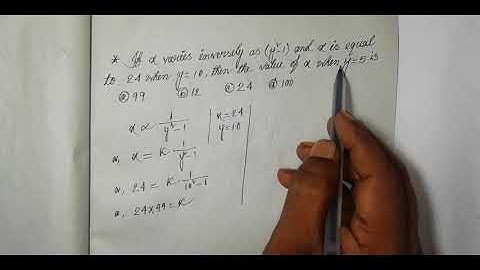 * If x varies inversely as (y²-1) and x is equal
to 24 when y = 10, then the value of x when y = 5 is
ⓐ 99 ⓑ 12 ⓒ 24 ⓓ 100
x ∝ 1/(y²-1) | x = 24
y = 10
or, x = K · 1/(y²-1)
or, 24 = K · 1/(10²-1)
or, 24 × 99 = K